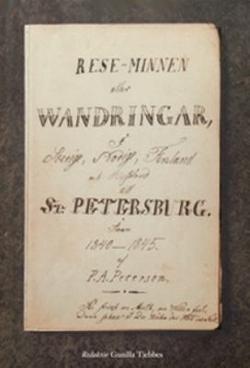 RESE-MINNEN
eller
WANDRINGAR,
I
Sverige, Norige, Finland
och Ryssland
till
St: PETERSBURG.
åren
1840–1845.
af
P.A. Peterson.
Redaktör Gunilla Tjebbes